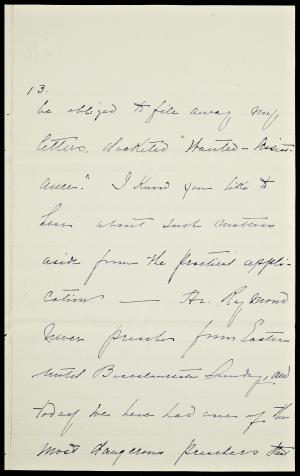 13.
be obliged to file away my
letters, docketed "Wanted - Assist-
ance." I know you like to
hear about such matters
aside from the practical appli-
cation — Dr. Raymond
never preaches from Easter
until Baccalaureate Sunday, and
today we have had one of the
most dangerous preachers that